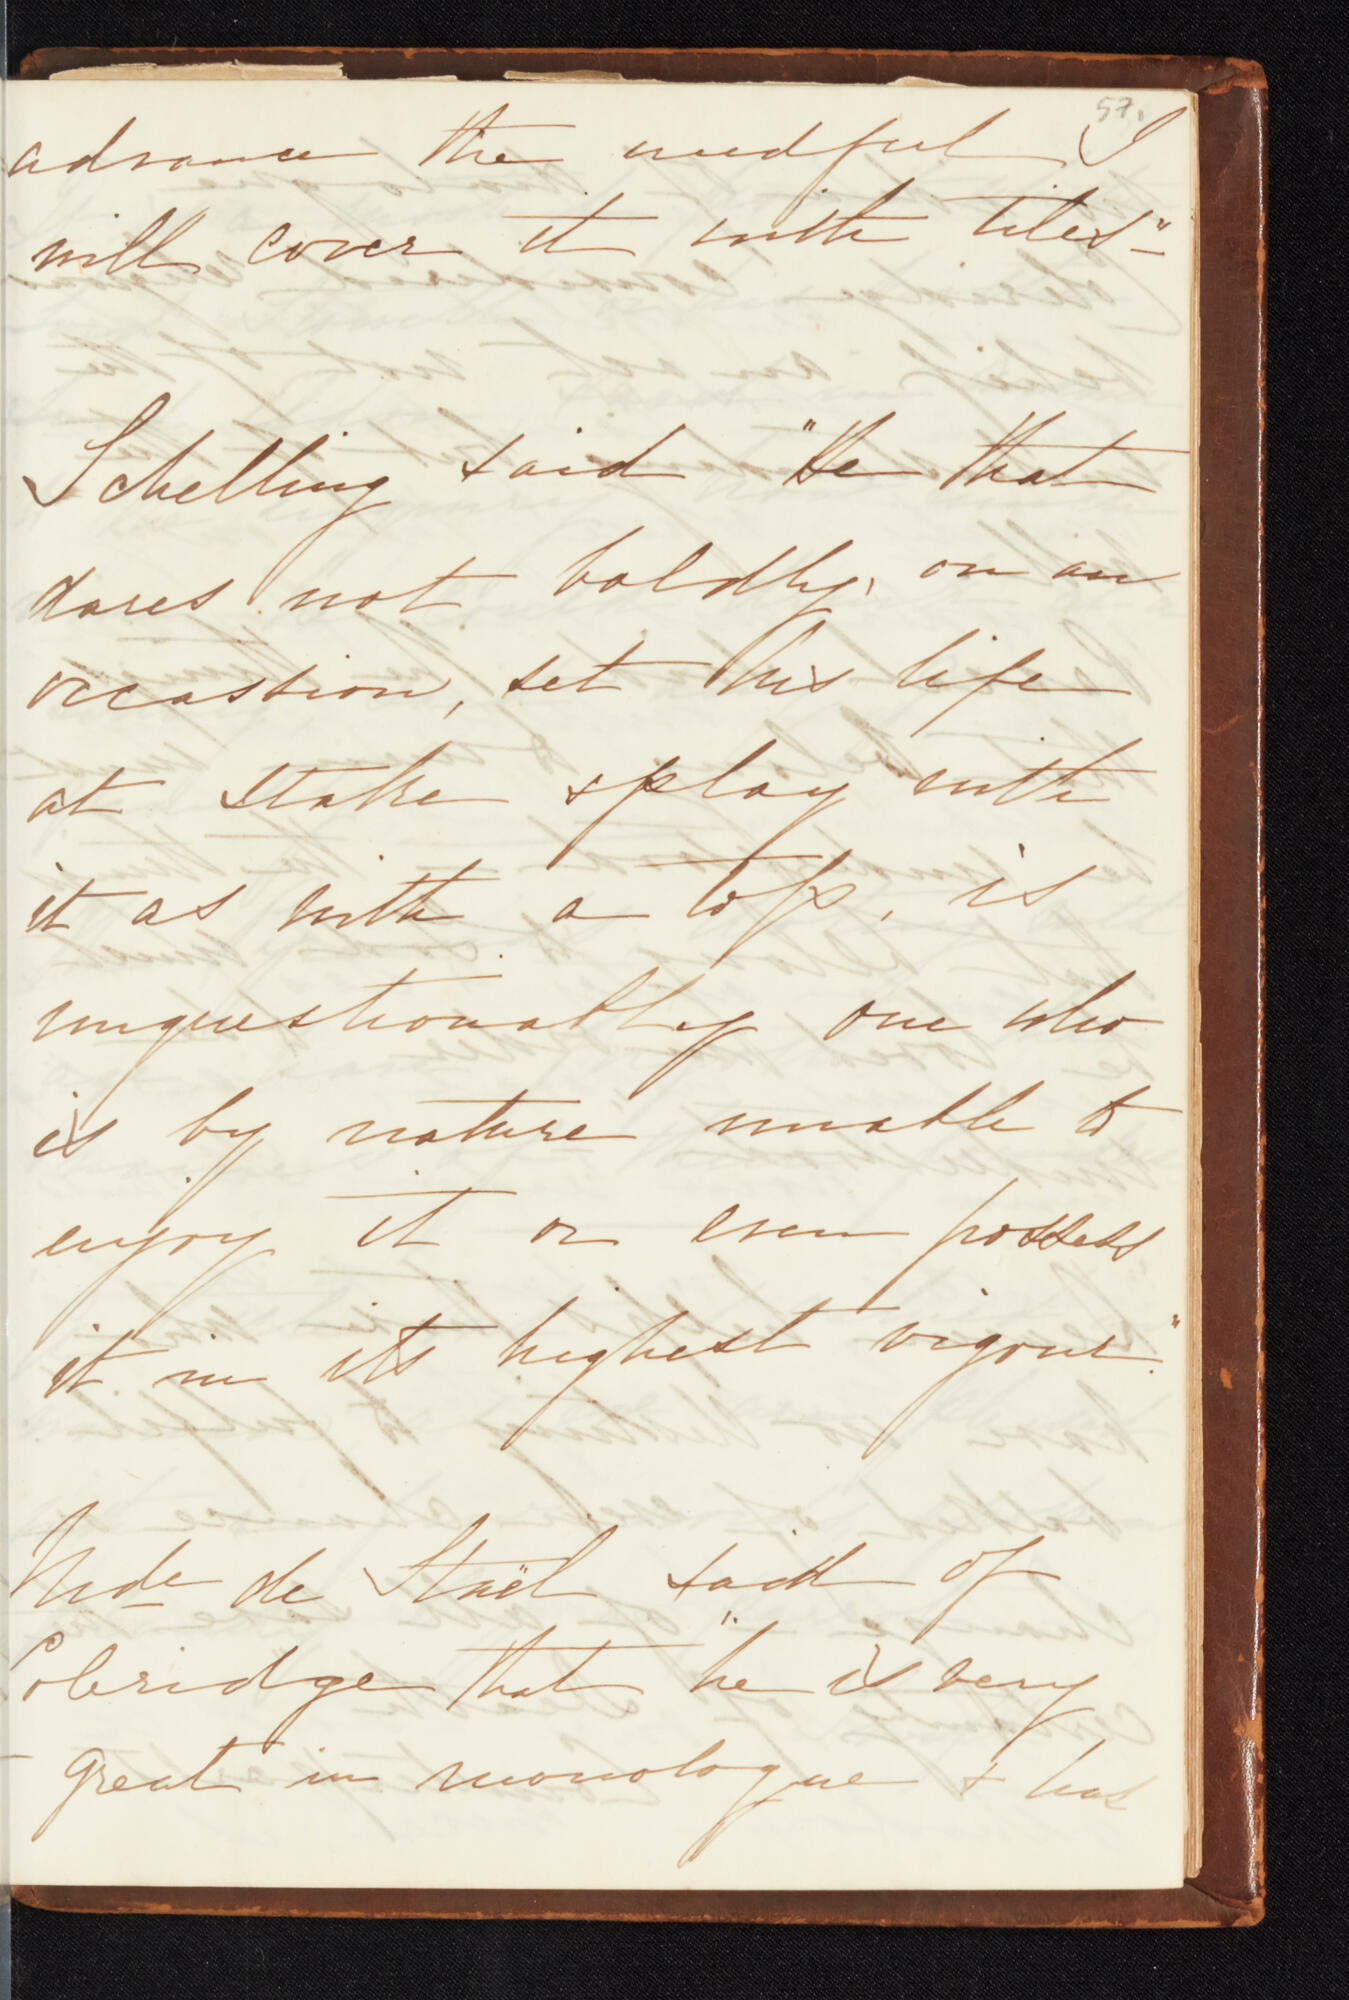 57.
advance the needful I
will cover it with tiles"
Schelling said "He that
dares not boldly, on an
occassion, set his life
at stake & play with
it as with a top, is
unquestionably one who
is by nature unable to
enjoy it or even possess
it in its highest vigour."
Mde de Staël said of
Coleridge that "he is very
great in monologue & has